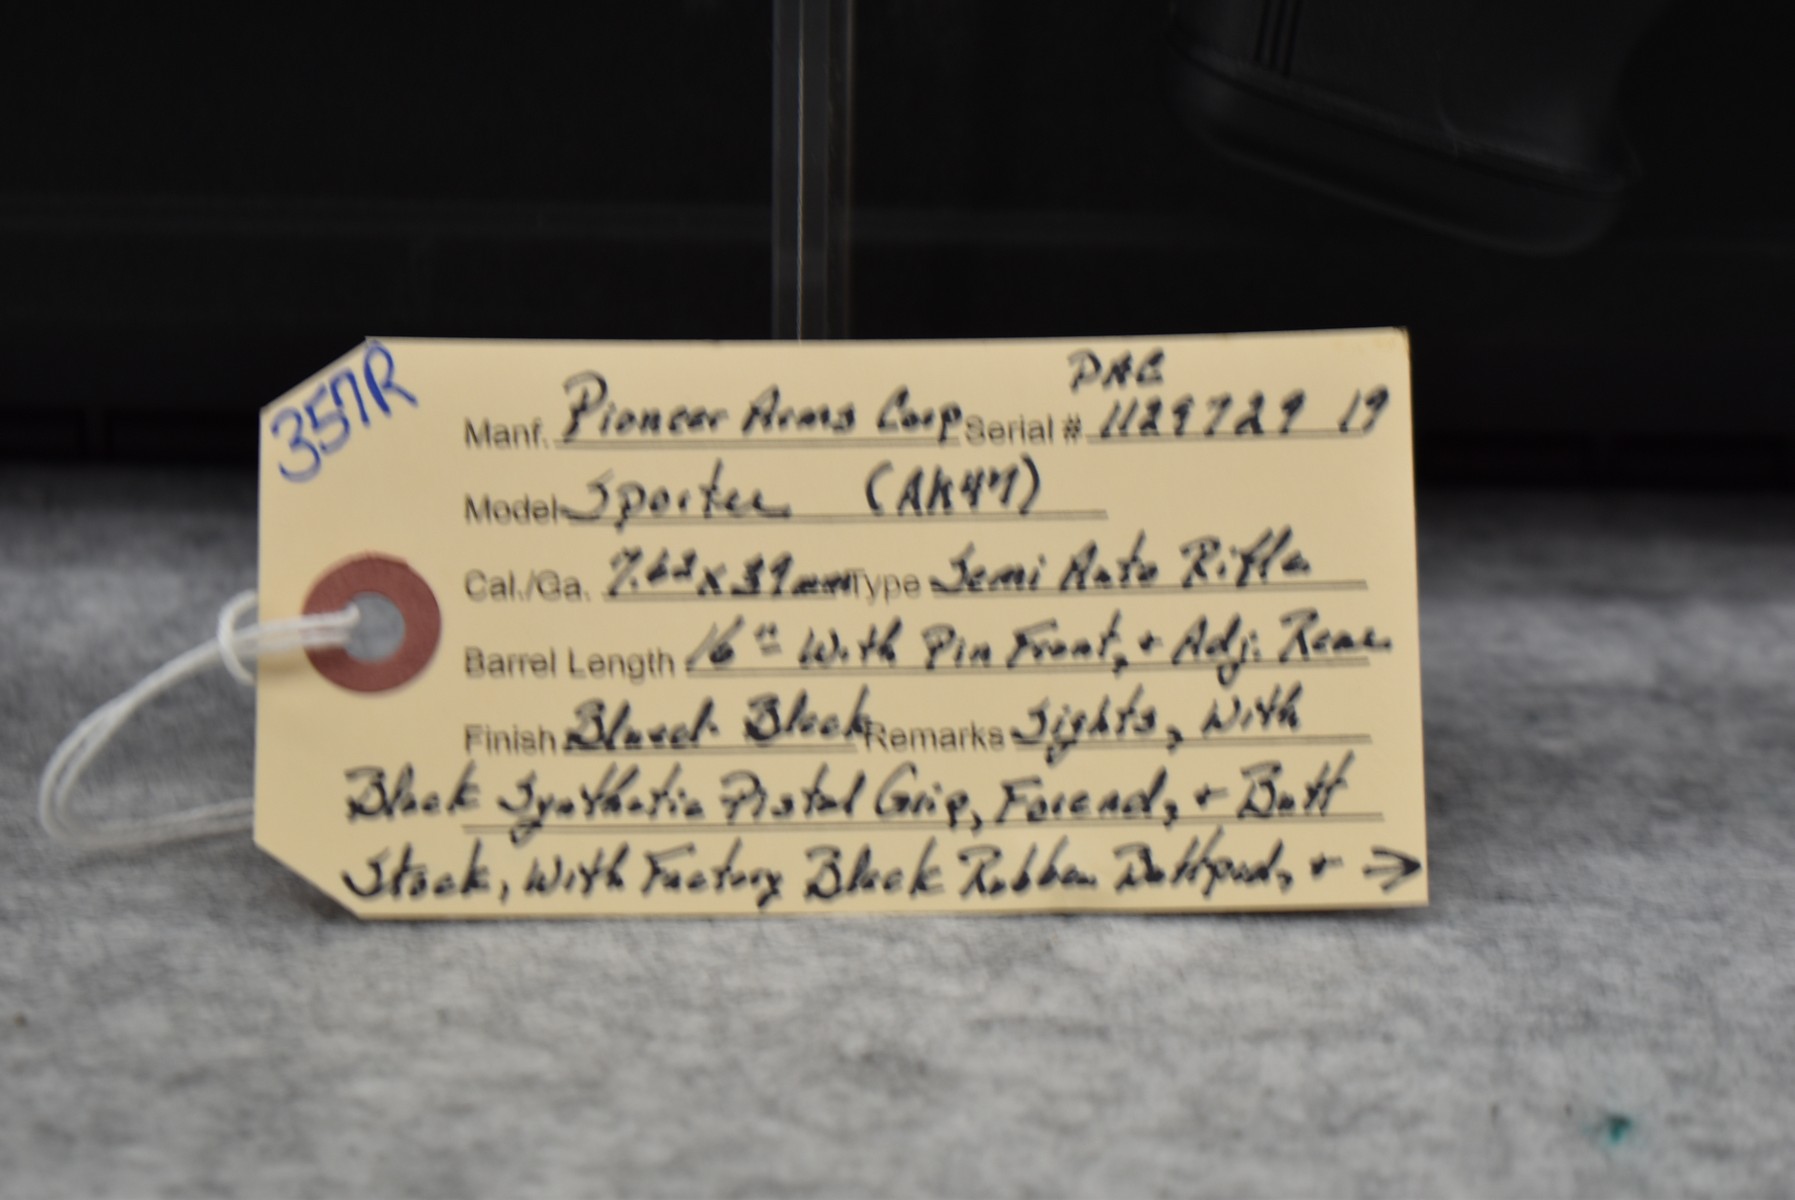 357R
PAC
Manf. Pioneer Arms Corp Serial # 1129729 19
Model Sporter (AK47)
Cal./Ga. 7.62x39mm Type Semi Auto Rifle
Barrel Length 16" With Pin Front, + Adj. Rear
Finish Blued Black Remarks Sights, With
Black Synthetic Pistol Grip, Forend, + Butt
Stock, With Factory Black Rubber Buttpad, + →